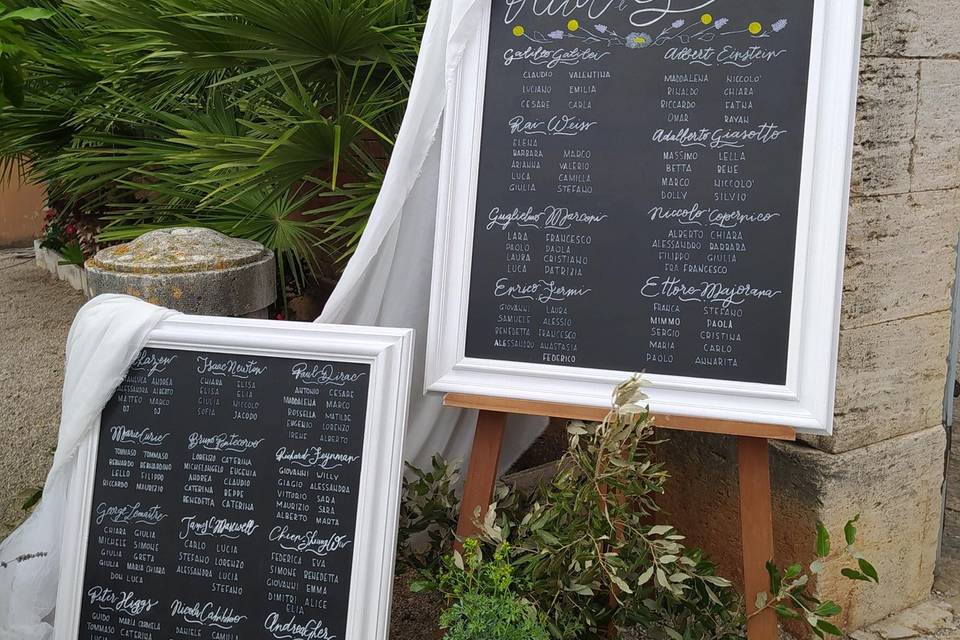 Galileo Galilei
CLAUDIO VALENTINA
LUCIANO EMILIA
CESARE CARLA
Rai Weiss
ELENA
BARBARA MARCO
ARIANNA VALERIO
LUCA CAMILLA
GIULIA STEFANO
Guglielmo Marconi
LARA FRANCESCO
PAOLO PAOLA
LAURA CRISTIANO
LUCA PATRIZIA
Enrico Fermi
GIOVANNI LAURA
SAMUELE ALESSIO
BENEDETTA FRANCESCO
ALESSANDRO ANASTASIA
FEDERICO
Albert Einstein
MADDALENA NICCOLO'
RINALDO CHIARA
RICCARDO FATNA
OMAR RAYAH
Adalberto Giasotto
MASSIMO LELLA
BETTA BENE
MARCO NICCOLO'
DOLLY SILVIO
Niccolo' Copernico
ALBERTO CHIARA
ALESSANDRO BARBARA
FILIPPO GIULIA
FRA FRANCESCO
Ettore Majorana
FRANCA STEFANO
MIMMO PAOLA
SERGIO CRISTINA
MARIA CARLO
PAOLO ANNARITA
GIANLUCA ANDREA
ALESSANDRA ALBERTO
MATTEO MARCO
DJ DJ
Marie Curie
TOMMASO TOMMASO
BERNARDO BERNARDINO
LELLO FILIPPO
RICCARDO MAURIZIO
George Lemaitre
CHIARA GIULIA
MICHELE SIMONE
GIULIA GIULIA
DON LUCA
Peter Higgs
GUIDO MARIA CARMELA
TOMMASO CATERINA
Isaac Newton
CHIARA ELISA
ELISA ELIA
GIULIA NICCOLO
SOFIA JACOPO
Bruno Pontecorvo
LORENZO CATERINA
MICHELANGELO EUGENIA
ANDREA CLAUDIO
CATERINA BEPPE
BENEDETTA CATERINA
James C Maxwell
CARLO LUCIA
STEFANO LORENZO
MARIA CHIARA
ALESSANDRA LUCIA
STEFANO
Nicola Cabibbo
DANIELE CAMILLA
Paul Dirac
ANTONIO CESARE
MADDALENA MARCO
ROSSELLA MATILDE
EUGENIO LORENZO
IRENE ALBERTO
Richard Feynmann
GIOVANNI WILLY
GIAGIO ALESSANDRA
VITTORIO SARA
MAURIZIO SARA
ALBERTO MARTA
Chien Shiung Wu
FEDERICA EVA
SIMONE BENEDETTA
GIOVANNI EMMA
DIMITRI ALICE
ELIA
Andrea Gher